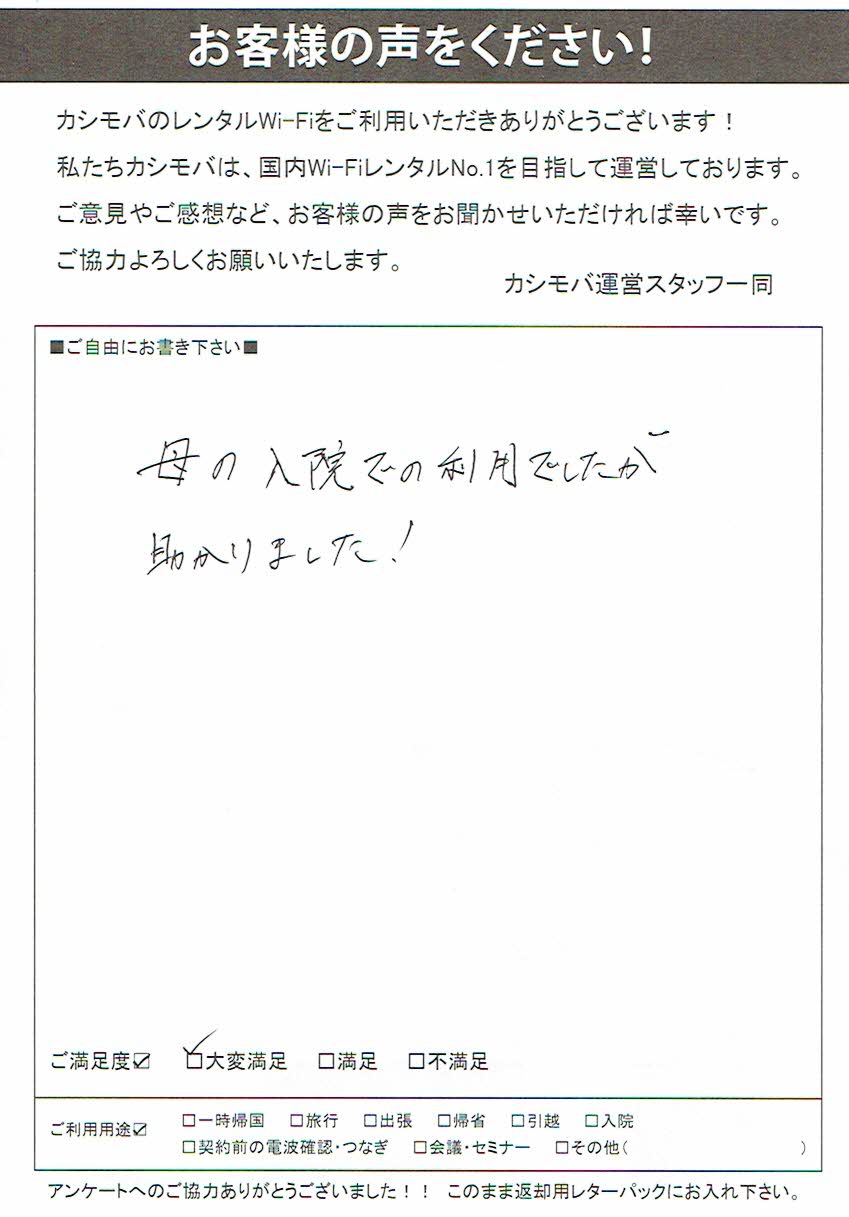 お客様の声をください!
カシモバのレンタルWi-Fiをご利用いただきありがとうございます！
私たちカシモバは、国内Wi-FiレンタルNo.1を目指して運営しております。
ご意見やご感想など、お客様の声をお聞かせいただければ幸いです。
ご協力よろしくお願いいたします。
カシモバ運営スタッフ一同
■ご自由にお書き下さい■
母の入院での利用でしたが
助かりました！
ご満足度☑ ☑大変満足 □満足 □不満足
ご利用用途☑ □一時帰国 □旅行 □出張 □帰省 □引越 □入院
□契約前の電波確認・つなぎ □会議・セミナー □その他( )
アンケートへのご協力ありがとうございました！！ このまま返却用レターパックにお入れ下さい。